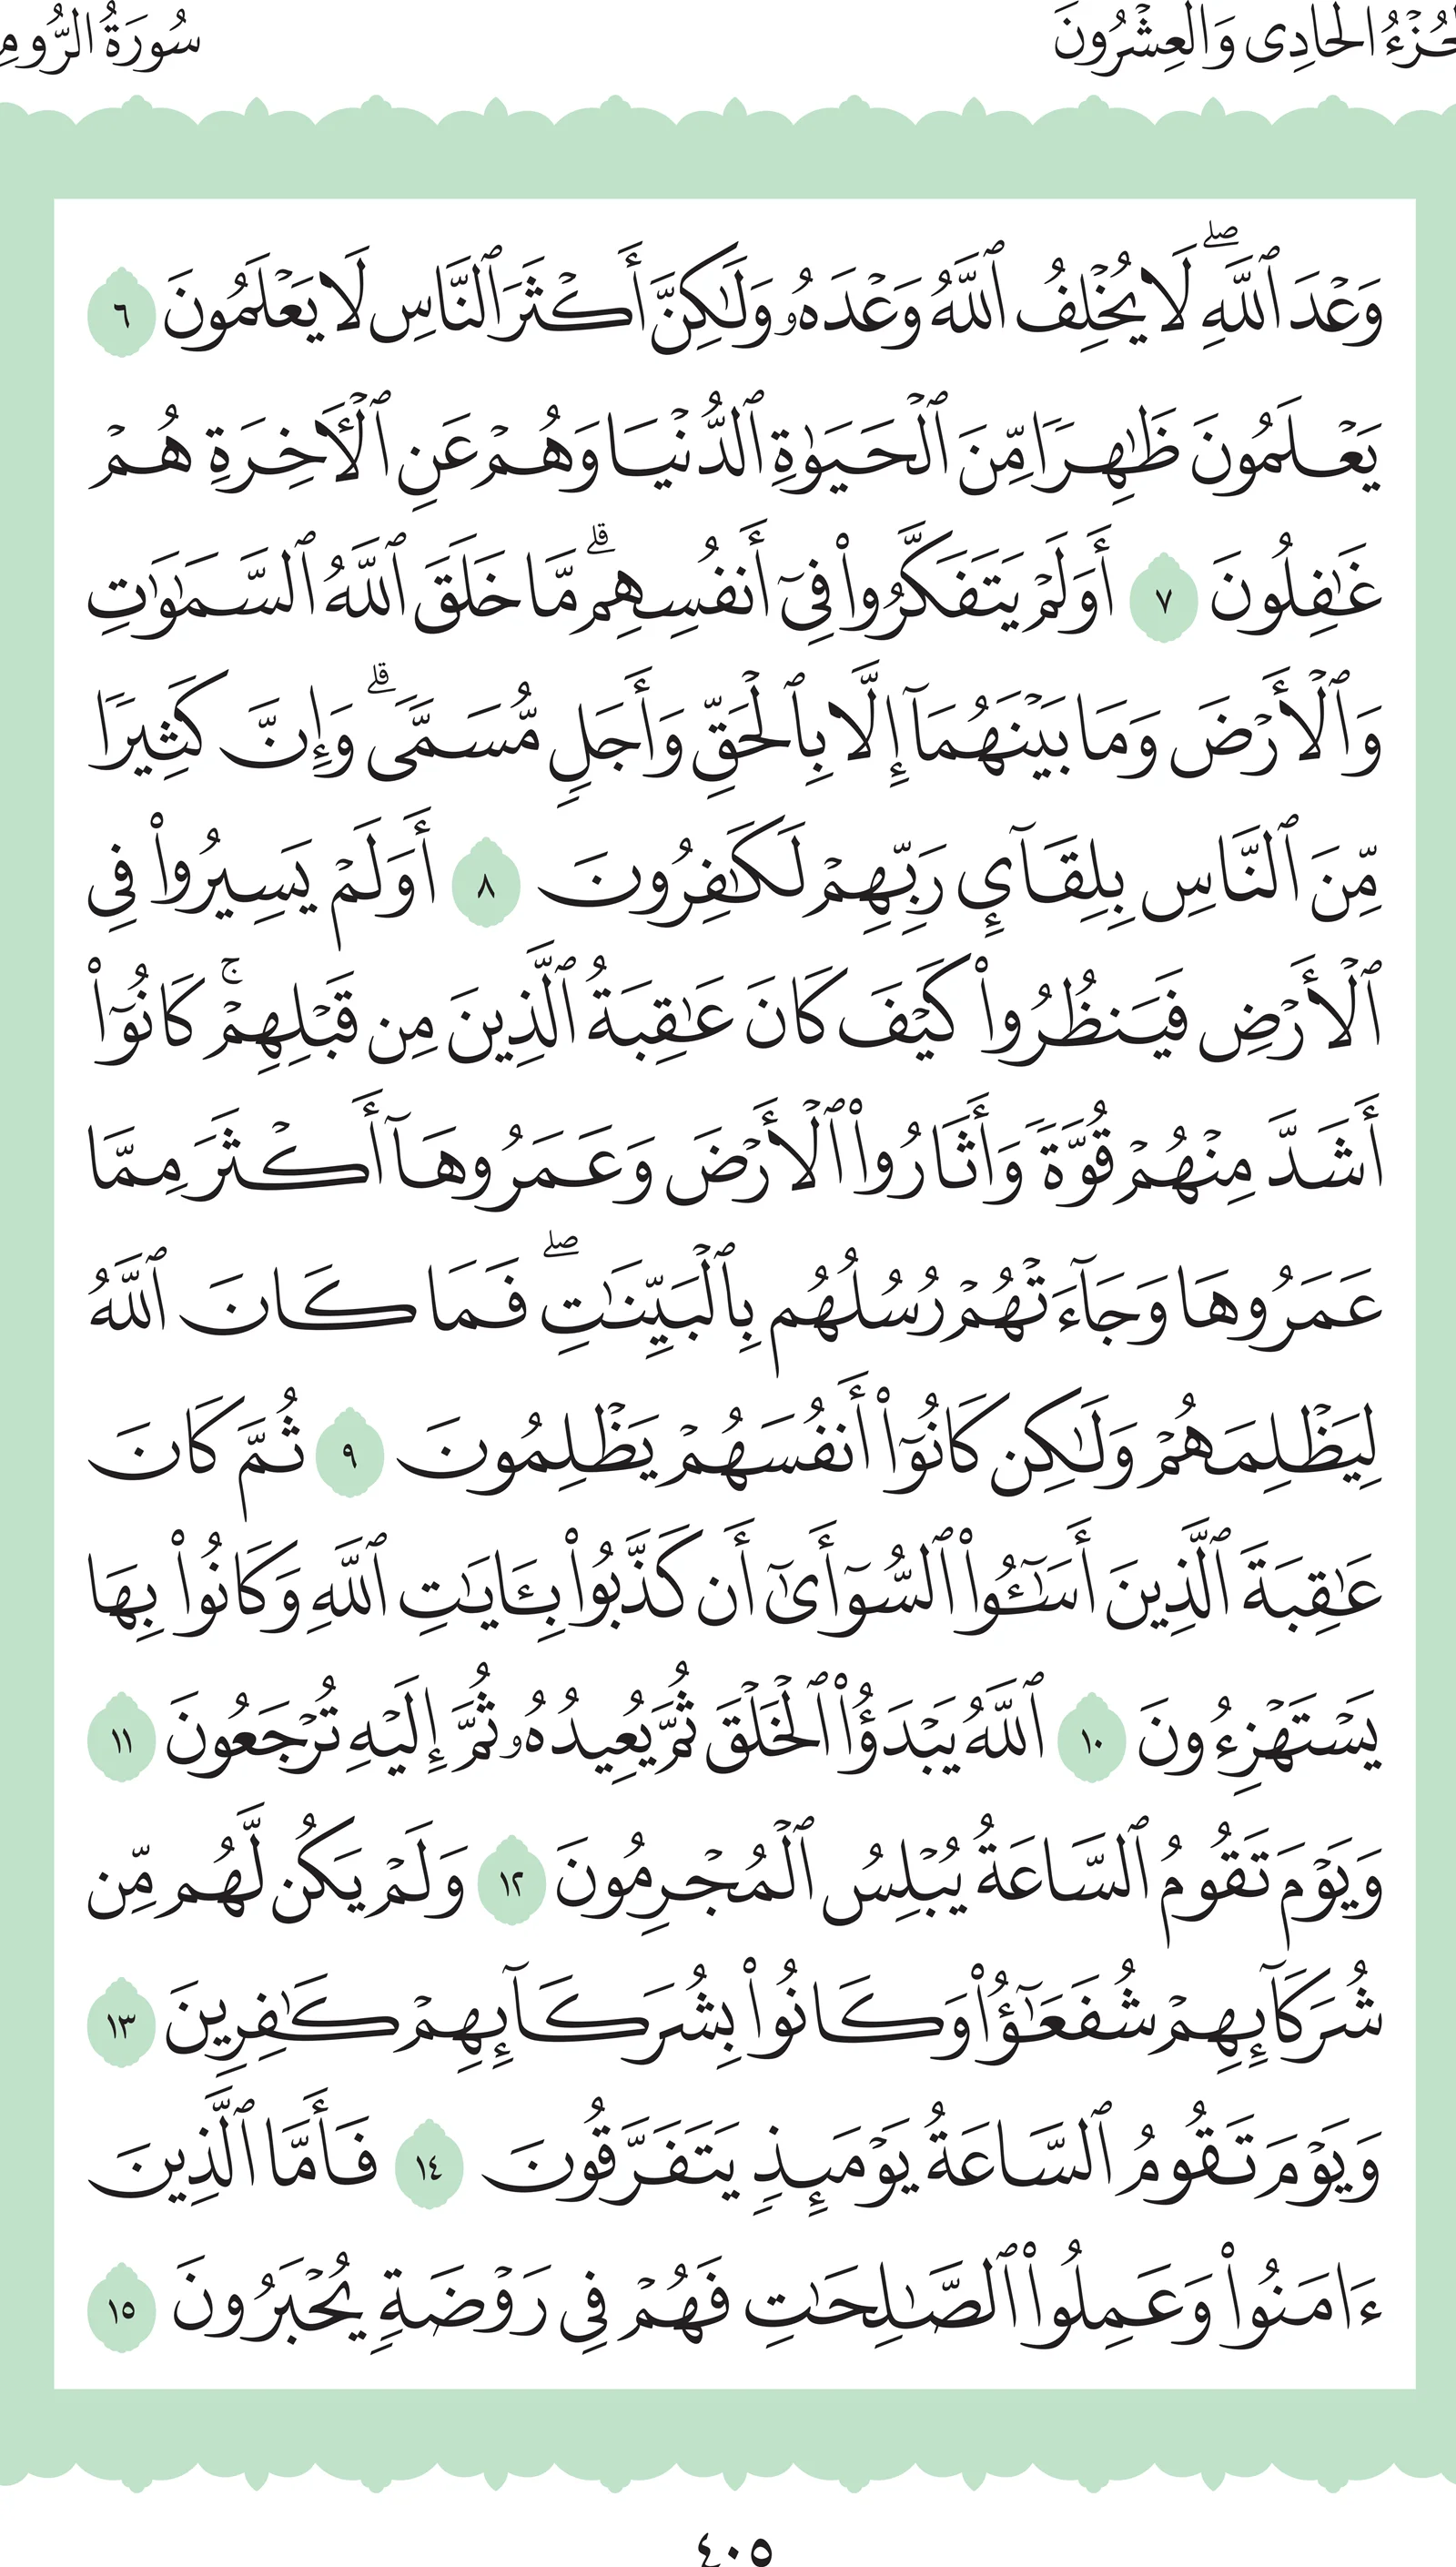 الجُزْءُ الحَادِى وَالعِشْرُونَ سُورَةُ الرُّومِ
وَعْدَ ٱللَّهِۖ لَا يُخْلِفُ ٱللَّهُ وَعْدَهُۥ وَلَٰكِنَّ أَكْثَرَ ٱلنَّاسِ لَا يَعْلَمُونَ ٦
يَعْلَمُونَ ظَٰهِرًا مِّنَ ٱلْحَيَوٰةِ ٱلدُّنْيَا وَهُمْ عَنِ ٱلْأٓخِرَةِ هُمْ
غَٰفِلُونَ ٧ أَوَلَمْ يَتَفَكَّرُوا۟ فِىٓ أَنفُسِهِمۗ مَّا خَلَقَ ٱللَّهُ ٱلسَّمَٰوَٰتِ
وَٱلْأَرْضَ وَمَا بَيْنَهُمَآ إِلَّا بِٱلْحَقِّ وَأَجَلٍ مُّسَمًّىۗ وَإِنَّ كَثِيرًا
مِّنَ ٱلنَّاسِ بِلِقَآئِ رَبِّهِمْ لَكَٰفِرُونَ ٨ أَوَلَمْ يَسِيرُوا۟ فِى
ٱلْأَرْضِ فَيَنظُرُوا۟ كَيْفَ كَانَ عَٰقِبَةُ ٱلَّذِينَ مِن قَبْلِهِمْۚ كَانُوٓا۟
أَشَدَّ مِنْهُمْ قُوَّةً وَأَثَارُوا۟ ٱلْأَرْضَ وَعَمَرُوهَآ أَكْثَرَ مِمَّا
عَمَرُوهَا وَجَآءَتْهُمْ رُسُلُهُم بِٱلْبَيِّنَٰتِۖ فَمَا كَانَ ٱللَّهُ
لِيَظْلِمَهُمْ وَلَٰكِن كَانُوٓا۟ أَنفُسَهُمْ يَظْلِمُونَ ٩ ثُمَّ كَانَ
عَٰقِبَةَ ٱلَّذِينَ أَسَٰٓـُٔوا۟ ٱلسُّوٓأَىٰٓ أَن كَذَّبُوا۟ بِـَٔايَٰتِ ٱللَّهِ وَكَانُوا۟ بِهَا
يَسْتَهْزِءُونَ ١٠ ٱللَّهُ يَبْدَؤُا۟ ٱلْخَلْقَ ثُمَّ يُعِيدُهُۥ ثُمَّ إِلَيْهِ تُرْجَعُونَ ١١
وَيَوْمَ تَقُومُ ٱلسَّاعَةُ يُبْلِسُ ٱلْمُجْرِمُونَ ١٢ وَلَمْ يَكُن لَّهُم مِّن
شُرَكَآئِهِمْ شُفَعَٰٓؤُا۟ وَكَانُوا۟ بِشُرَكَآئِهِمْ كَٰفِرِينَ ١٣
وَيَوْمَ تَقُومُ ٱلسَّاعَةُ يَوْمَئِذٍ يَتَفَرَّقُونَ ١٤ فَأَمَّا ٱلَّذِينَ
ءَامَنُوا۟ وَعَمِلُوا۟ ٱلصَّٰلِحَٰتِ فَهُمْ فِى رَوْضَةٍ يُحْبَرُونَ ١٥
٤٠٥